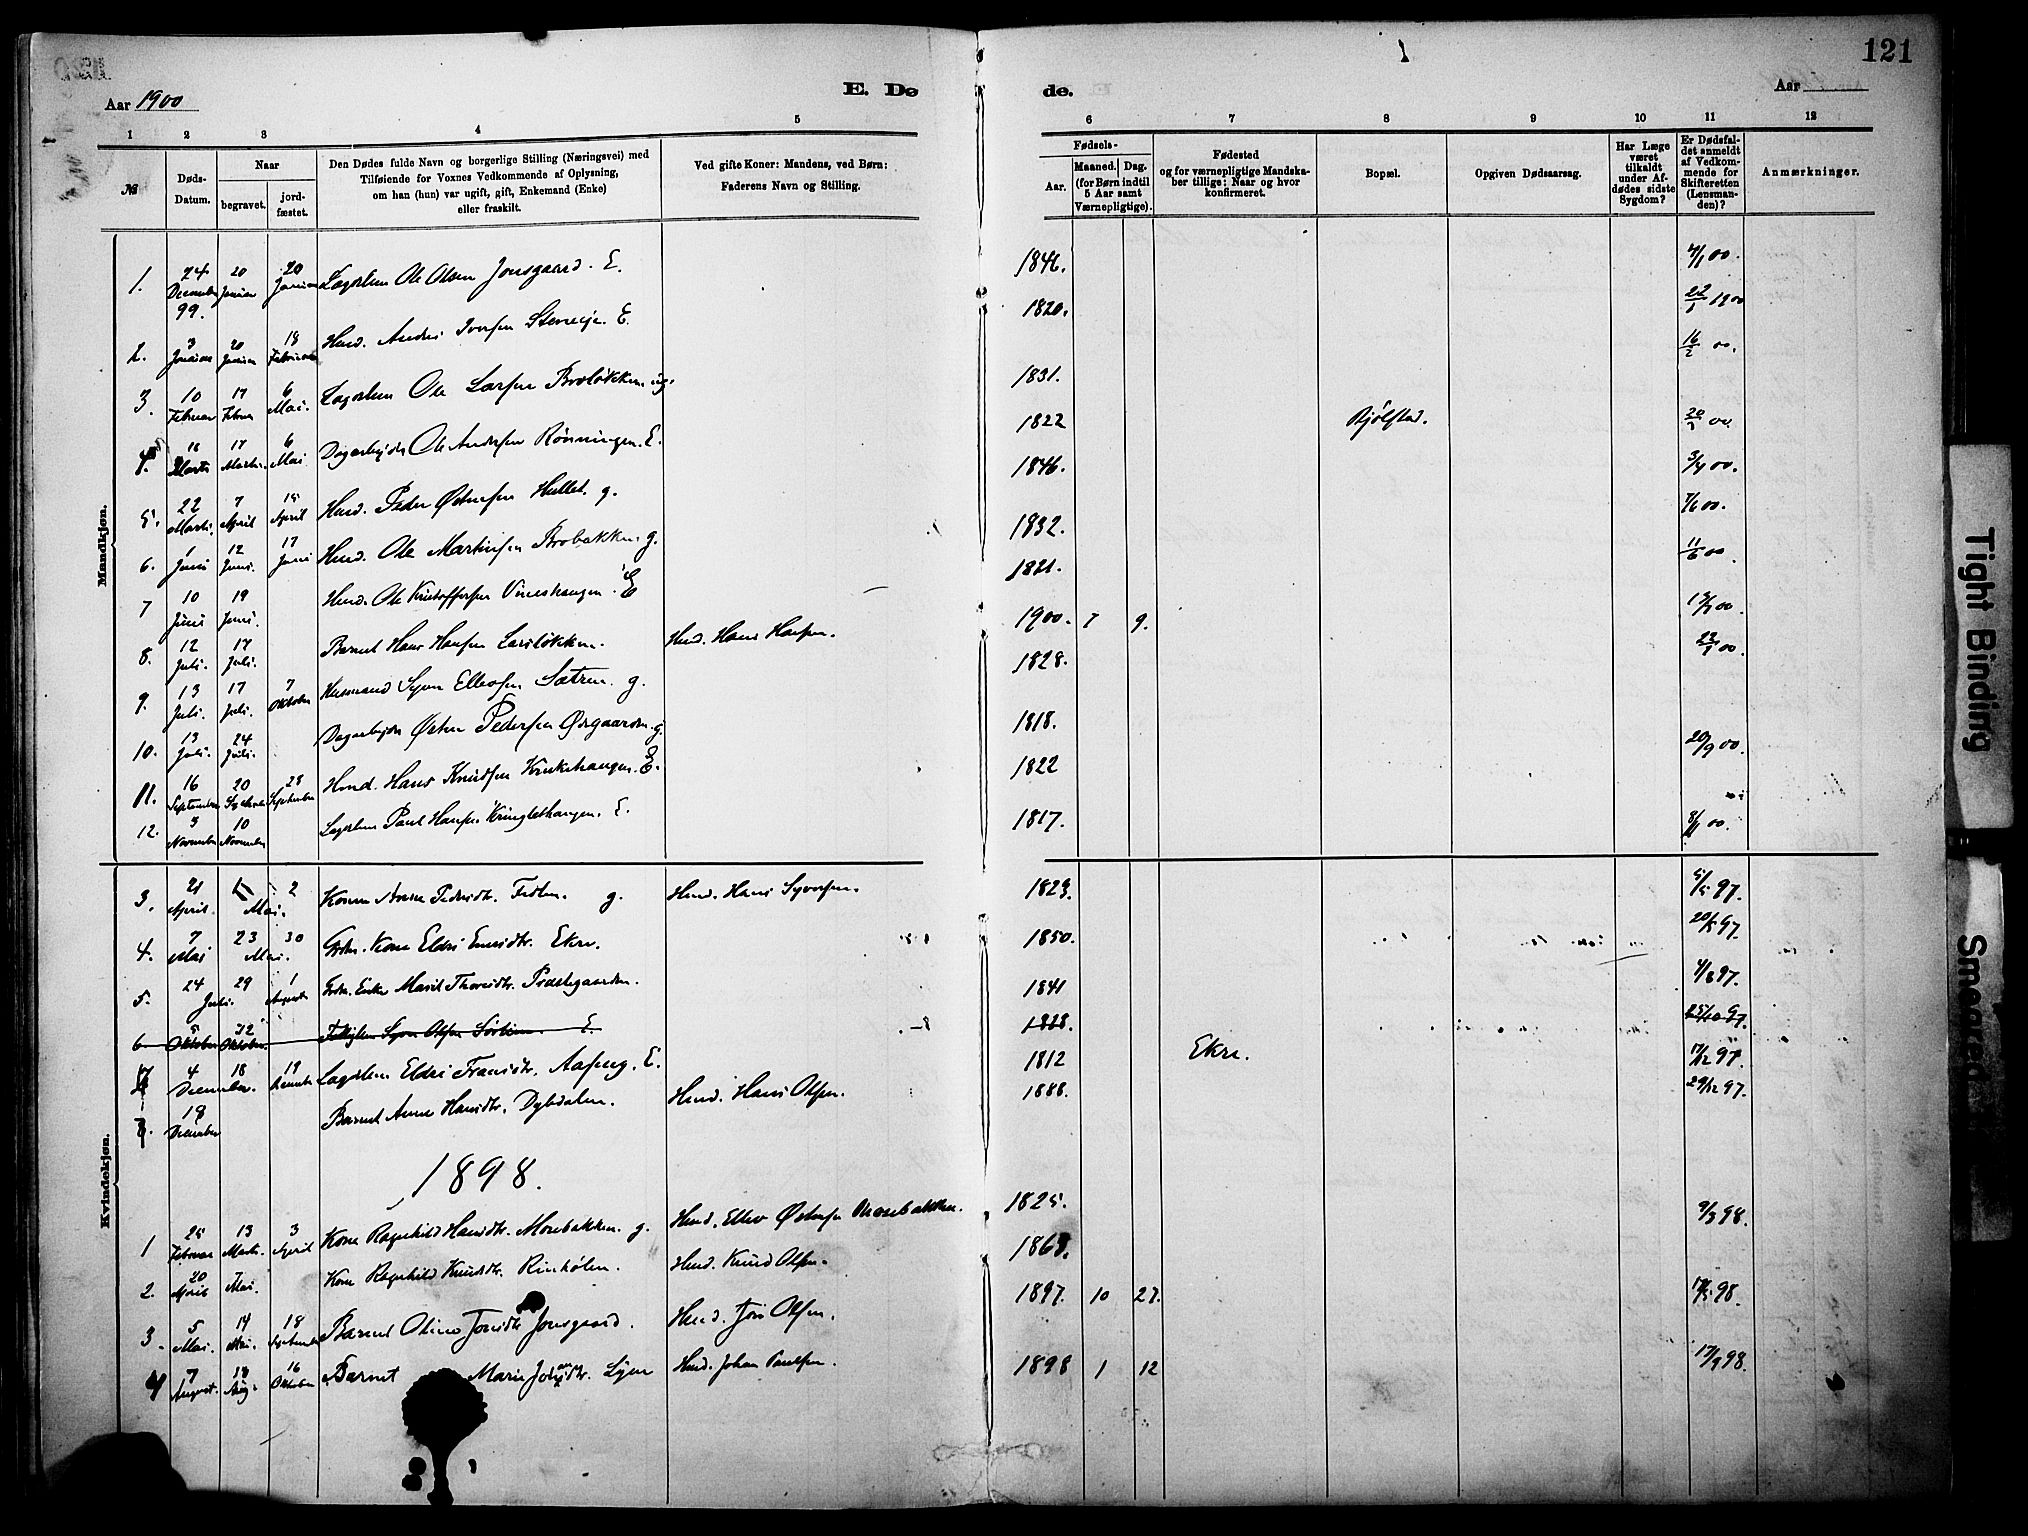 121
Aar 1900
E. Dø
de.
Aar
1 2 3 4 5 6 7 8 9 10 11 12
№
Døds-
Datum.
Naar
begravet.
jord-
fæstet.
Den Dødes fulde Navn og borgerlige Stilling (Næringsvei) med
Tilføiende for Voxnes Vedkommende af Oplysning,
om han (hun) var ugift, gift, Enkemand (Enke)
eller fraskilt.
Ved gifte Koner: Mandens, ved Børn:
Faderens Navn og Stilling.
Fødsels-
Aar.
Maaned. Dag.
(for Børn indtil
5 Aar samt
Værnepligtige).
Fødested
og for værnepligtige Mandska-
ber tillige: Naar og hvor
konfirmeret.
Bopæl.
Opgiven Dødsaarsag.
Har Læge
været
tilkaldt
under Af-
dødes sidste
Sygdom?
Er Dødsfal-
det anmeldt
af Vedkom-
mende for
Skifteretten
(Lensman-
den)?
Anmærkninger.
Mandkjøn.
1. 24 December 99. 20 Januar 20 Januar Ole Olsen Jonsgaard. E. 1846.
2. 3 Januar 20 Januar 18 Februar Husd. Iversen E. 1820. 22/1 1900
3. 10 Februar 17 Februar 6 Mai. Ole Larsen ug. 1831. 16/2 00.
4. 16 Marts 17 Marts. 6 Mai Dagarbejder Ole Andersen Rønningen. E. 1822 Bjølstad. 00.
5. 22 Marts. 7 April 15 April Husd. Peder Østensen Hullet. g. 1846. 3/4 00.
6. 1 Juni 12 Juni. 17 Juni Husd. Ole Martinsen Brobakken. g. 1832. 7/6 00.
7 10 Juni 19 Juni. Husd. Ole Kristoffersen E 1821. 11/6 00.
8. 12 Juli. 17 Juli. Barnet Hans Hansen Larsløkken. Husd. Hans Hansen. 1900. 7 9. 13/7 00.
9. 13 Juli. 17 Juli. 7 Oktober Husmand Syver Ellevsen Sætren. g. 1828. 00.
10. 13 Juli. 24 Juli. Dagarbejder Østen Pedersen Øigaarden. g. 1818.
11. 16 September 20 28 September Husd. Hans Knudsen E. 1822 20/9 00.
12. 3 November 10 November Paul Hansen Kringlehaugen. E. 1817. 8/11 00.
Kvindekjøn.
3. 21 April. 2 Mai. Konen Anne Pedersdtr. g. Husd. Hans Syversen. 1823. 5/5 97.
4. 7 Mai 23 30 Mai. Kone Eldri Ekre. 1850. 20/5 97.
5. 24 29 Juli. 1 August Enke Marit Prestegaarden. 1841 4/8 97.
6. 5 Oktober 12 Oktober. Syver Olsen E. 1828. 25/10 97.
7 4 18 December. 19 Eldri Fransdtr. Aaseng. E. 1812 Ekre. 17/12 97.
8. 18 December Barnet Anne Hansdtr. Dybdalen. Husd. Hans Olsen. 1888. 29/12 97.
1898.
1 25 Februar 13 Marts. 3 April Kone Ragnhild Hansdtr. Mosebakken. g. Husd. Ellev Østensen Mosebakken. 1825. 9/3 98.
2. 20 April 7 Mai. Kone Ragnhild Knudsdtr. Husd. Knud Olsen. 1863.
3. 5 Mai. 14 Mai. 18 September Barnet Oline Jonsdtr. Jonsgaard. Husd. Jon Olsen. 1897. 10 27. 17/5 98.
4 7 August. 18 Aug. 16 Oktober Barnet Marie Johansdtr. Husd. Johan Paulsen. 1898 1 12 17/9 98.
Tight Binding
Smeared